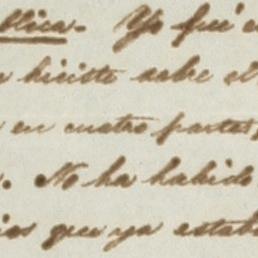 blica. Yo fué
hiciste sobre el
en cuatro partes,
. No ha habido
ios que ya estab